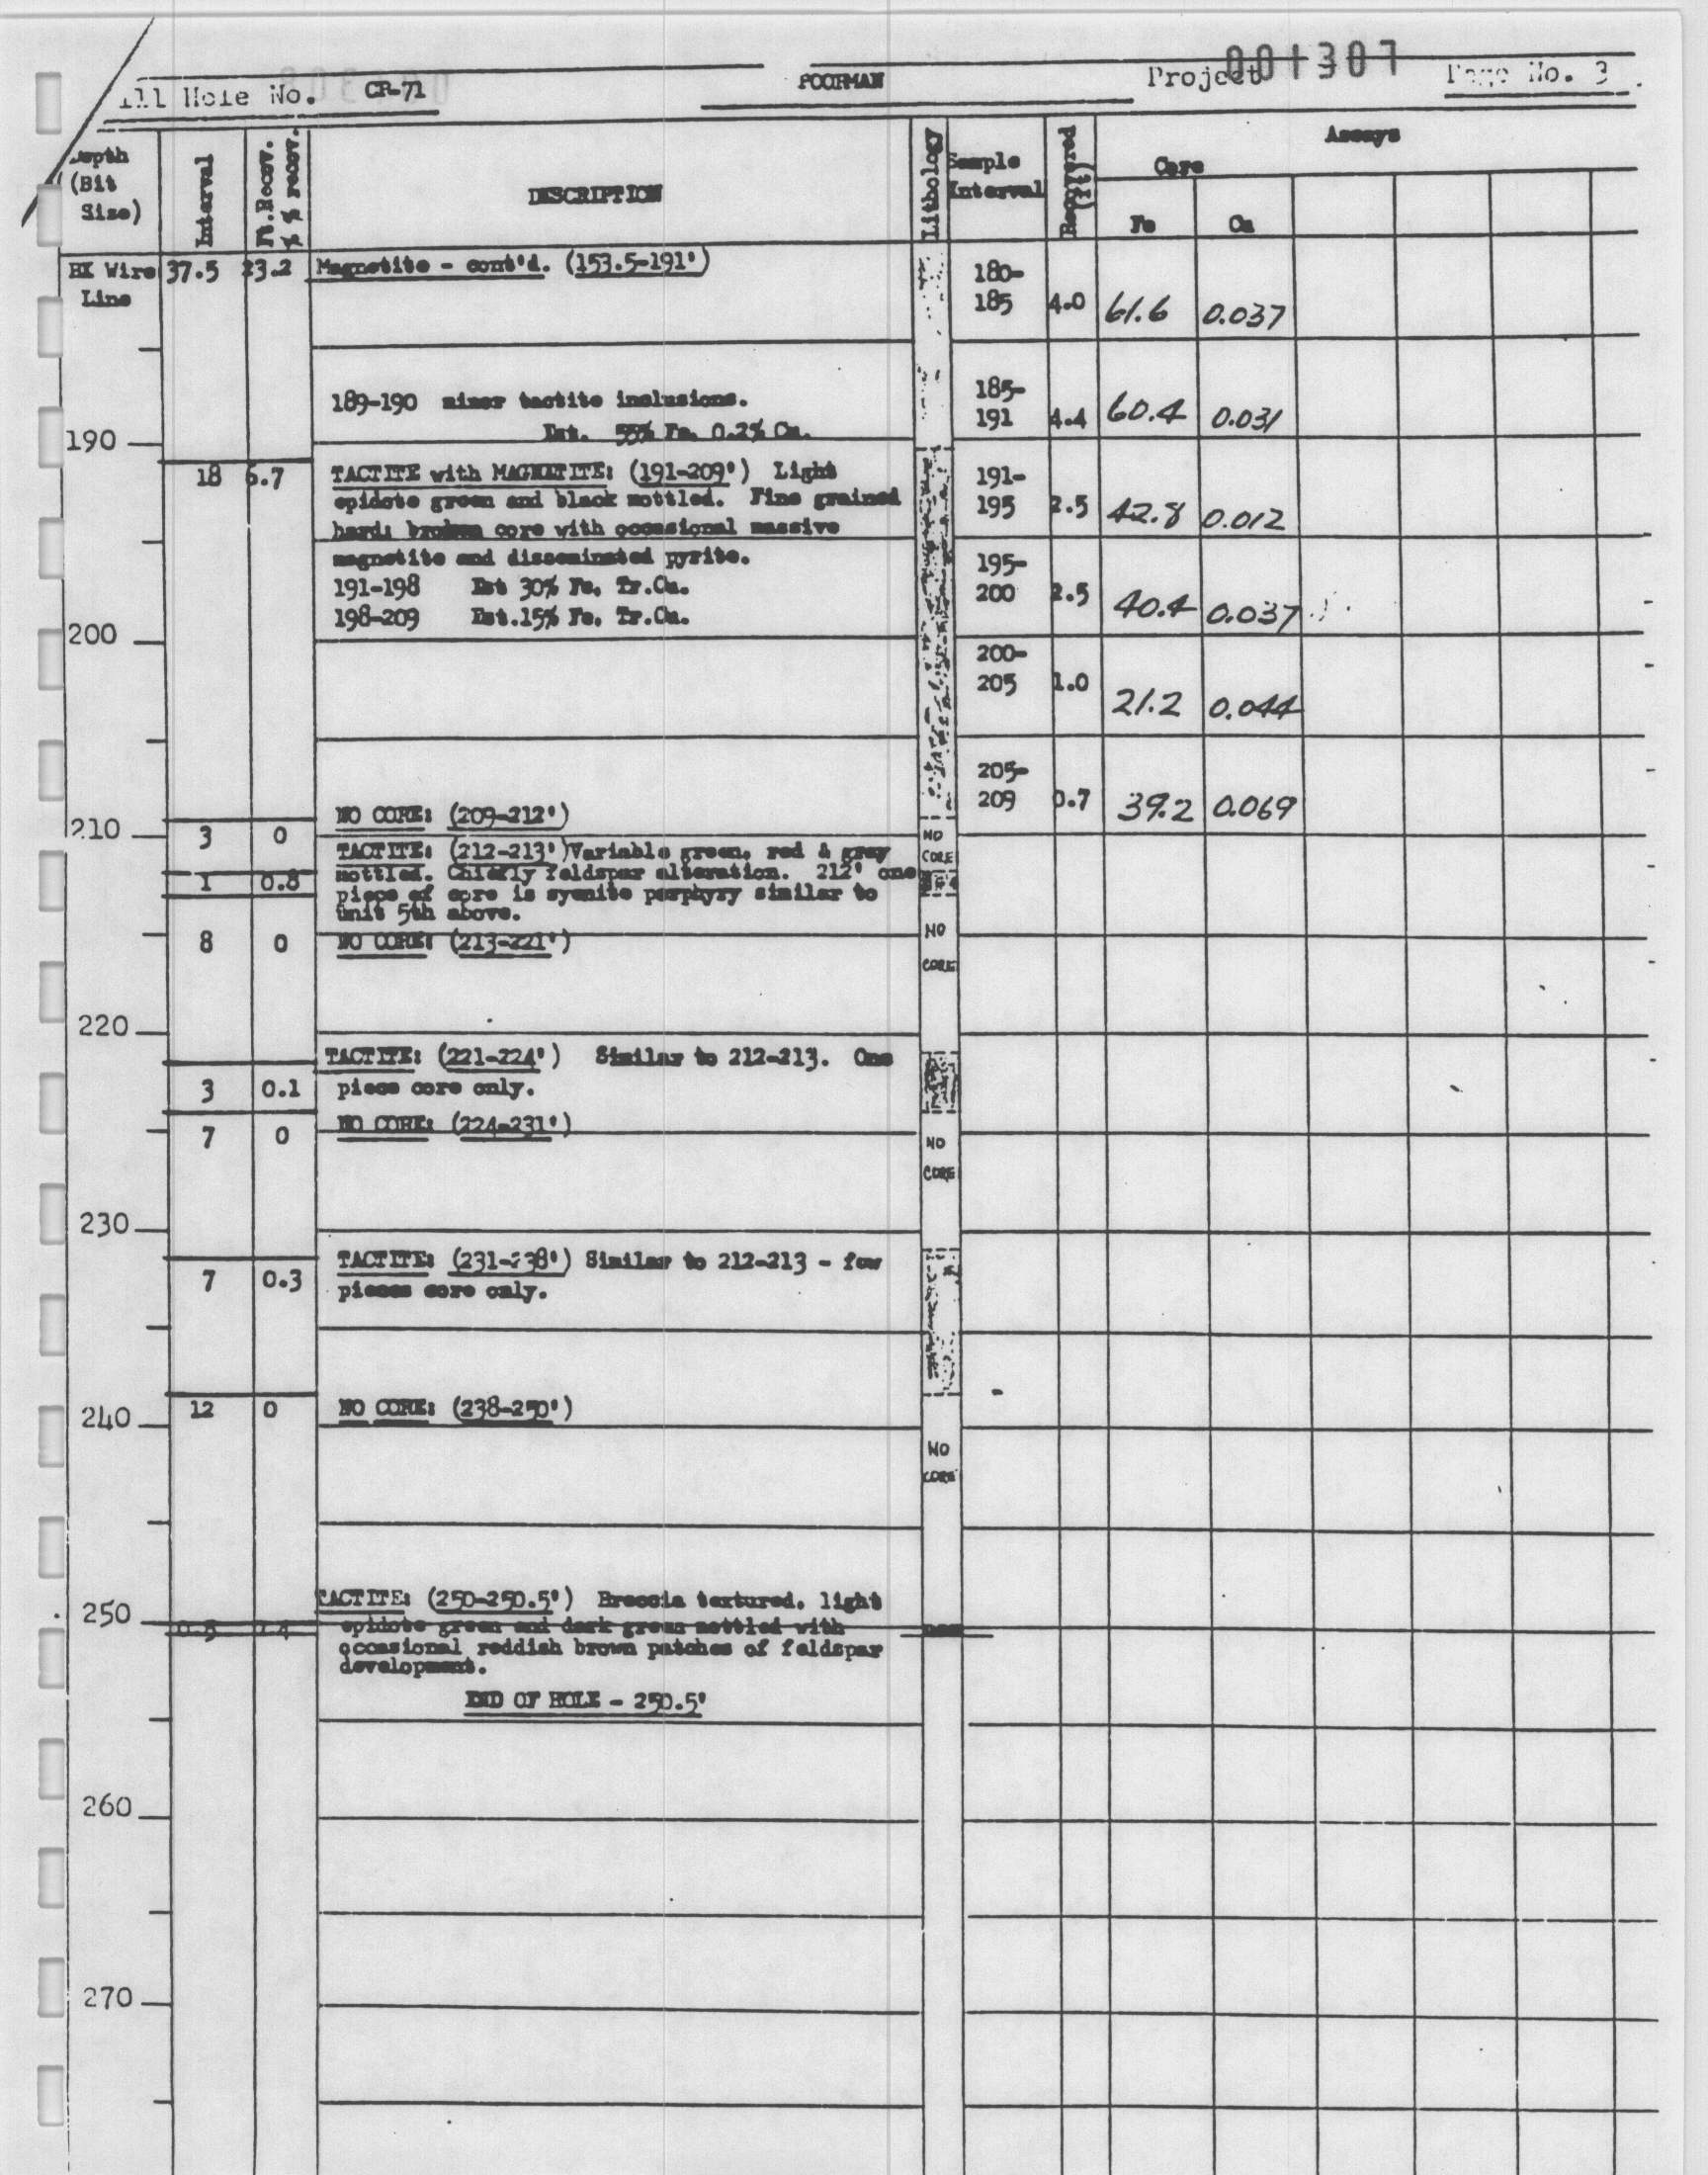 001307
ill Hole No. CR-71 POORMAN Project Page No. 3
Depth (Bit Size) Interval Ft.Recov. % recov. DESCRIPTION Lithology Sample Interval Recovered Assays
Core
Fe Cu
BX Wire Line 37.5 23.2 Magnetite - cont'd. (153.5-191')
180-185 4.0 61.6 0.037
189-190 minor tactite inclusions.
Est. 55% Fe, 0.2% Cu.
185-191 4.4 60.4 0.031
190
18 6.7 TACTITE with MAGNETITE: (191-209') Light
epidote green and black mottled. Fine grained
hard; broken core with occasional massive
magnetite and disseminated pyrite.
191-198 Est 30% Fe, Tr.Cu.
198-209 Est.15% Fe, Tr.Cu.
191-195 2.5 42.8 0.012
195-200 2.5 40.4 0.037
200
200-205 1.0 21.2 0.044
205-209 0.7 39.2 0.069
NO CORE: (209-212')
210 3 0 NO CORE
TACTITE: (212-213') Variable green, red & gray
1 0.8 mottled. Chiefly feldspar alteration. 212' one
piece of core is syenite porphyry similar to
unit 5th above.
8 0 NO CORE: (213-221') NO CORE
220
TACTITE: (221-224') Similar to 212-213. One
3 0.1 piece core only.
7 0 NO CORE: (224-231') NO CORE
230
TACTITE: (231-238') Similar to 212-213 - few
7 0.3 pieces core only.
12 0 NO CORE: (238-250')
240 NO CORE
TACTITE: (250-250.5') Breccia textured, light
250 0.5 epidote green and dark green mottled with
occasional reddish brown patches of feldspar
development.
END OF HOLE - 250.5'
260
270